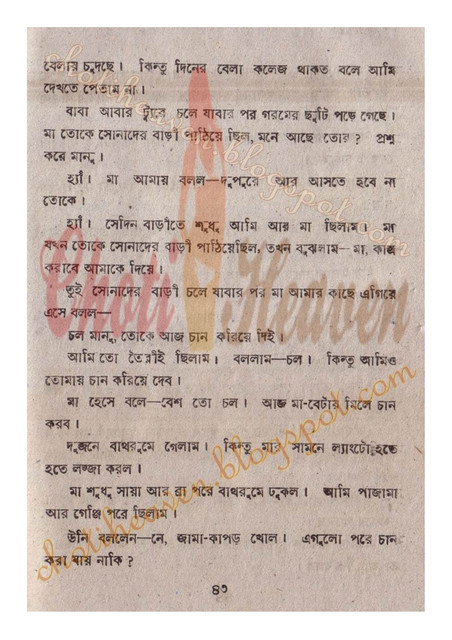 বেলায় চুদছে। কিন্তু দিনের বেলা কলেজ থাকত বলে আমি
দেখতে পেতাম না।
বাবা আবার ট্যুরে চলে যাবার পর গরমের ছুটি পড়ে গেছে।
মা তোকে সোনাদের বাড়ী পাঠিয়ে ছিল, মনে আছে তোর? প্রশ্ন
করে মানু।
হ্যাঁ। মা আমায় বলল—দুপুরে আর আসতে হবে না
তোকে।
হ্যাঁ। সেদিন বাড়ীতে শুধু আমি আর মা ছিলাম। মা
যখন তোকে সোনাদের বাড়ী পাঠিয়েছিল, তখন বুঝলাম—মা, কাজ
করাবে আমাকে দিয়ে।
তুই সোনাদের বাড়ী চলে যাবার পর মা আমার কাছে এগিয়ে
এসে বলল—
চল মানু, তোকে আজ চান করিয়ে দিই।
আমি তো তৈরীই ছিলাম। বললাম—চল। কিন্তু আমিও
তোমায় চান করিয়ে দেব।
মা হেসে বলে—বেশ তো চল। আজ মা-বেটায় মিলে চান
করব।
দুজনে বাথরুমে গেলাম। কিন্তু মার সামনে ল্যাংটো হতে
হতে লজ্জা করল।
মা শুধু সায়া আর ব্রা পরে বাথরুমে ঢুকল। আমি পাজামা
আর গেঞ্জি পরে ছিলাম।
উনি বললেন—নে, জামা-কাপড় খোল। এগুলো পরে চান
করা যায় নাকি?
৪৩
Choti Heaven
chotiheaven.blogspot.com
chotiheaven.blogspot.com